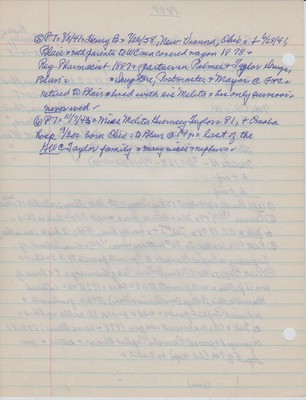 @PT = 7/4/41 = Henry B = 7/21/58, New Vienna, Ohio = + 7/20/41,
Blair = with parents to WC in a covered wagon 18-78 =
Reg Pharmacist 1887 = partner in Palmer & Taylor Drugs,
Blair = Drug Store, Postmaster & Mayor @ =
retired to Blair & lived with sis Melita = his only survivor =
never wed =
@PT = 10/7/43 = Miss Melita Taylor = 81, + Omaha
hosp born Ohio = to Blair @ = last of the
Taylor family = many nieces & nephews =